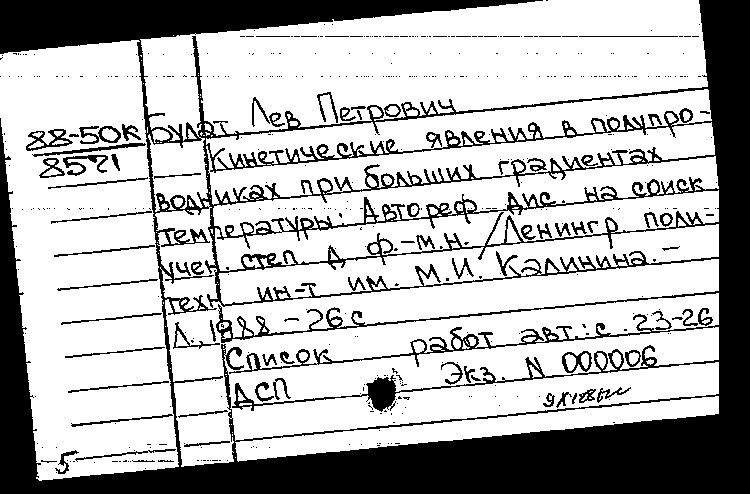 88-50К Булат, Лев Петрович
8571
Кинетические явления в полупро-
водниках при больших градиентах
температуры: Автореф дис. на соиск
учен. степ. д ф.-м.н. / Ленингр поли-
техн ин-т им. М.И. Калинина. –
Л., 1988 – 26 с
Список работ авт.: с. 23-26
ДСП Экз. N 000006
5